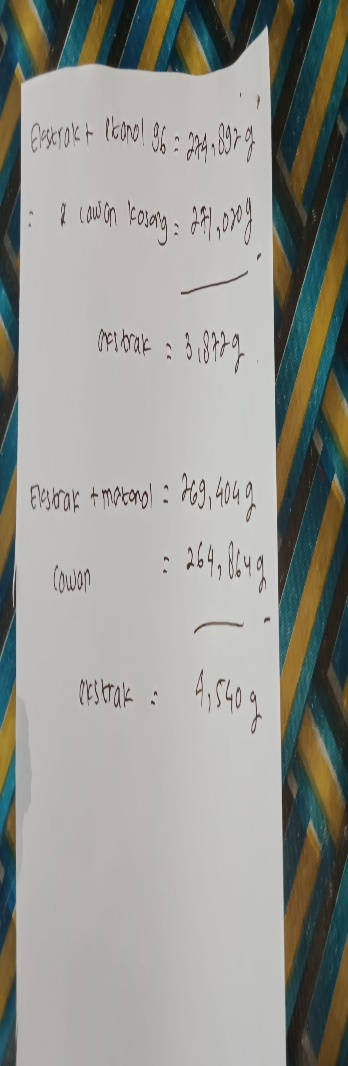 Ekstrak + etanol 96 = 274,892 g
= cawan kosong = 271,020 g
ekstrak = 3,872 g
Ekstrak + metanol = 269,404 g
Cawan = 264,864 g
ekstrak = 4,540 g